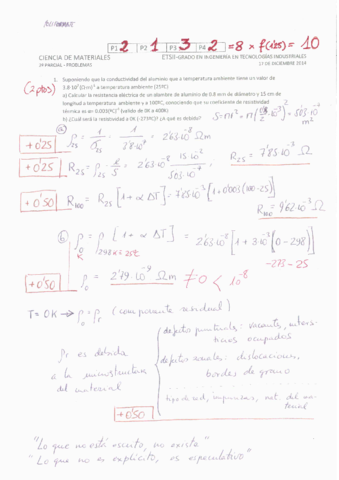 P1 2 P2 1 P3 3 P4 2 = 8 x f(1.25) = 10
CIENCIA DE MATERIALES
ETSII-GRADO EN INGENIERÍA EN TECNOLOGÍAS INDUSTRIALES
2º PARCIAL - PROBLEMAS
17 DE DICIEMBRE 2014
(2 ptos)
1. Suponiendo que la conductividad del aluminio que a temperatura ambiente tiene un valor de
3.8·10⁷(Ωm)⁻¹ a temperatura ambiente (25ºC)
a) Calcular la resistencia eléctrica de un alambre de aluminio de 0.8 mm de diámetro y 15 cm de
longitud a temperatura ambiente y a 100ºC, conociendo que su coeficiente de resistividad
térmica es de 0.003(ºK)⁻¹
b) ¿Cuál será la resistividad a 0K (-273ºC)? ¿A qué es debido?
a)
+0'25
ρ25 = 1/σ25 = 1/3.8·10⁷ = 2'63·10⁻⁸ Ωm
+0'25
R25 = ρ25 · l/S = 2'63·10⁻⁸ · 15·10⁻²/5'03·10⁻⁷
R25 = 7'85·10⁻³ Ω
+0'50
R100 = R25 [1 + α ΔT] = 7'85·10⁻³ [1+0'003(100-25)]
R100 = 9'62·10⁻³ Ω
b)
ρ0 = ρ298K=25ºC [1 + α ΔT] = 2'63·10⁻⁸ [1 + 3·10⁻³ (0-298)]
0K
-273-25
+0'50
ρ0 = 2'79·10⁻⁹ Ωm ≠ 0 < 10⁻⁸
T = 0K → ρ0 = ρr (componente residual)
ρr es debida
a la microestructura
del material
defectos puntuales: vacantes, inters-
ticios ocupados
defectos lineales: dislocaciones,
bordes de grano
tipo de red, impurezas, nat. del ma-
terial
+0'50
"Lo que no está escrito, no existe"
"Lo que no es explícito, es especulativo"